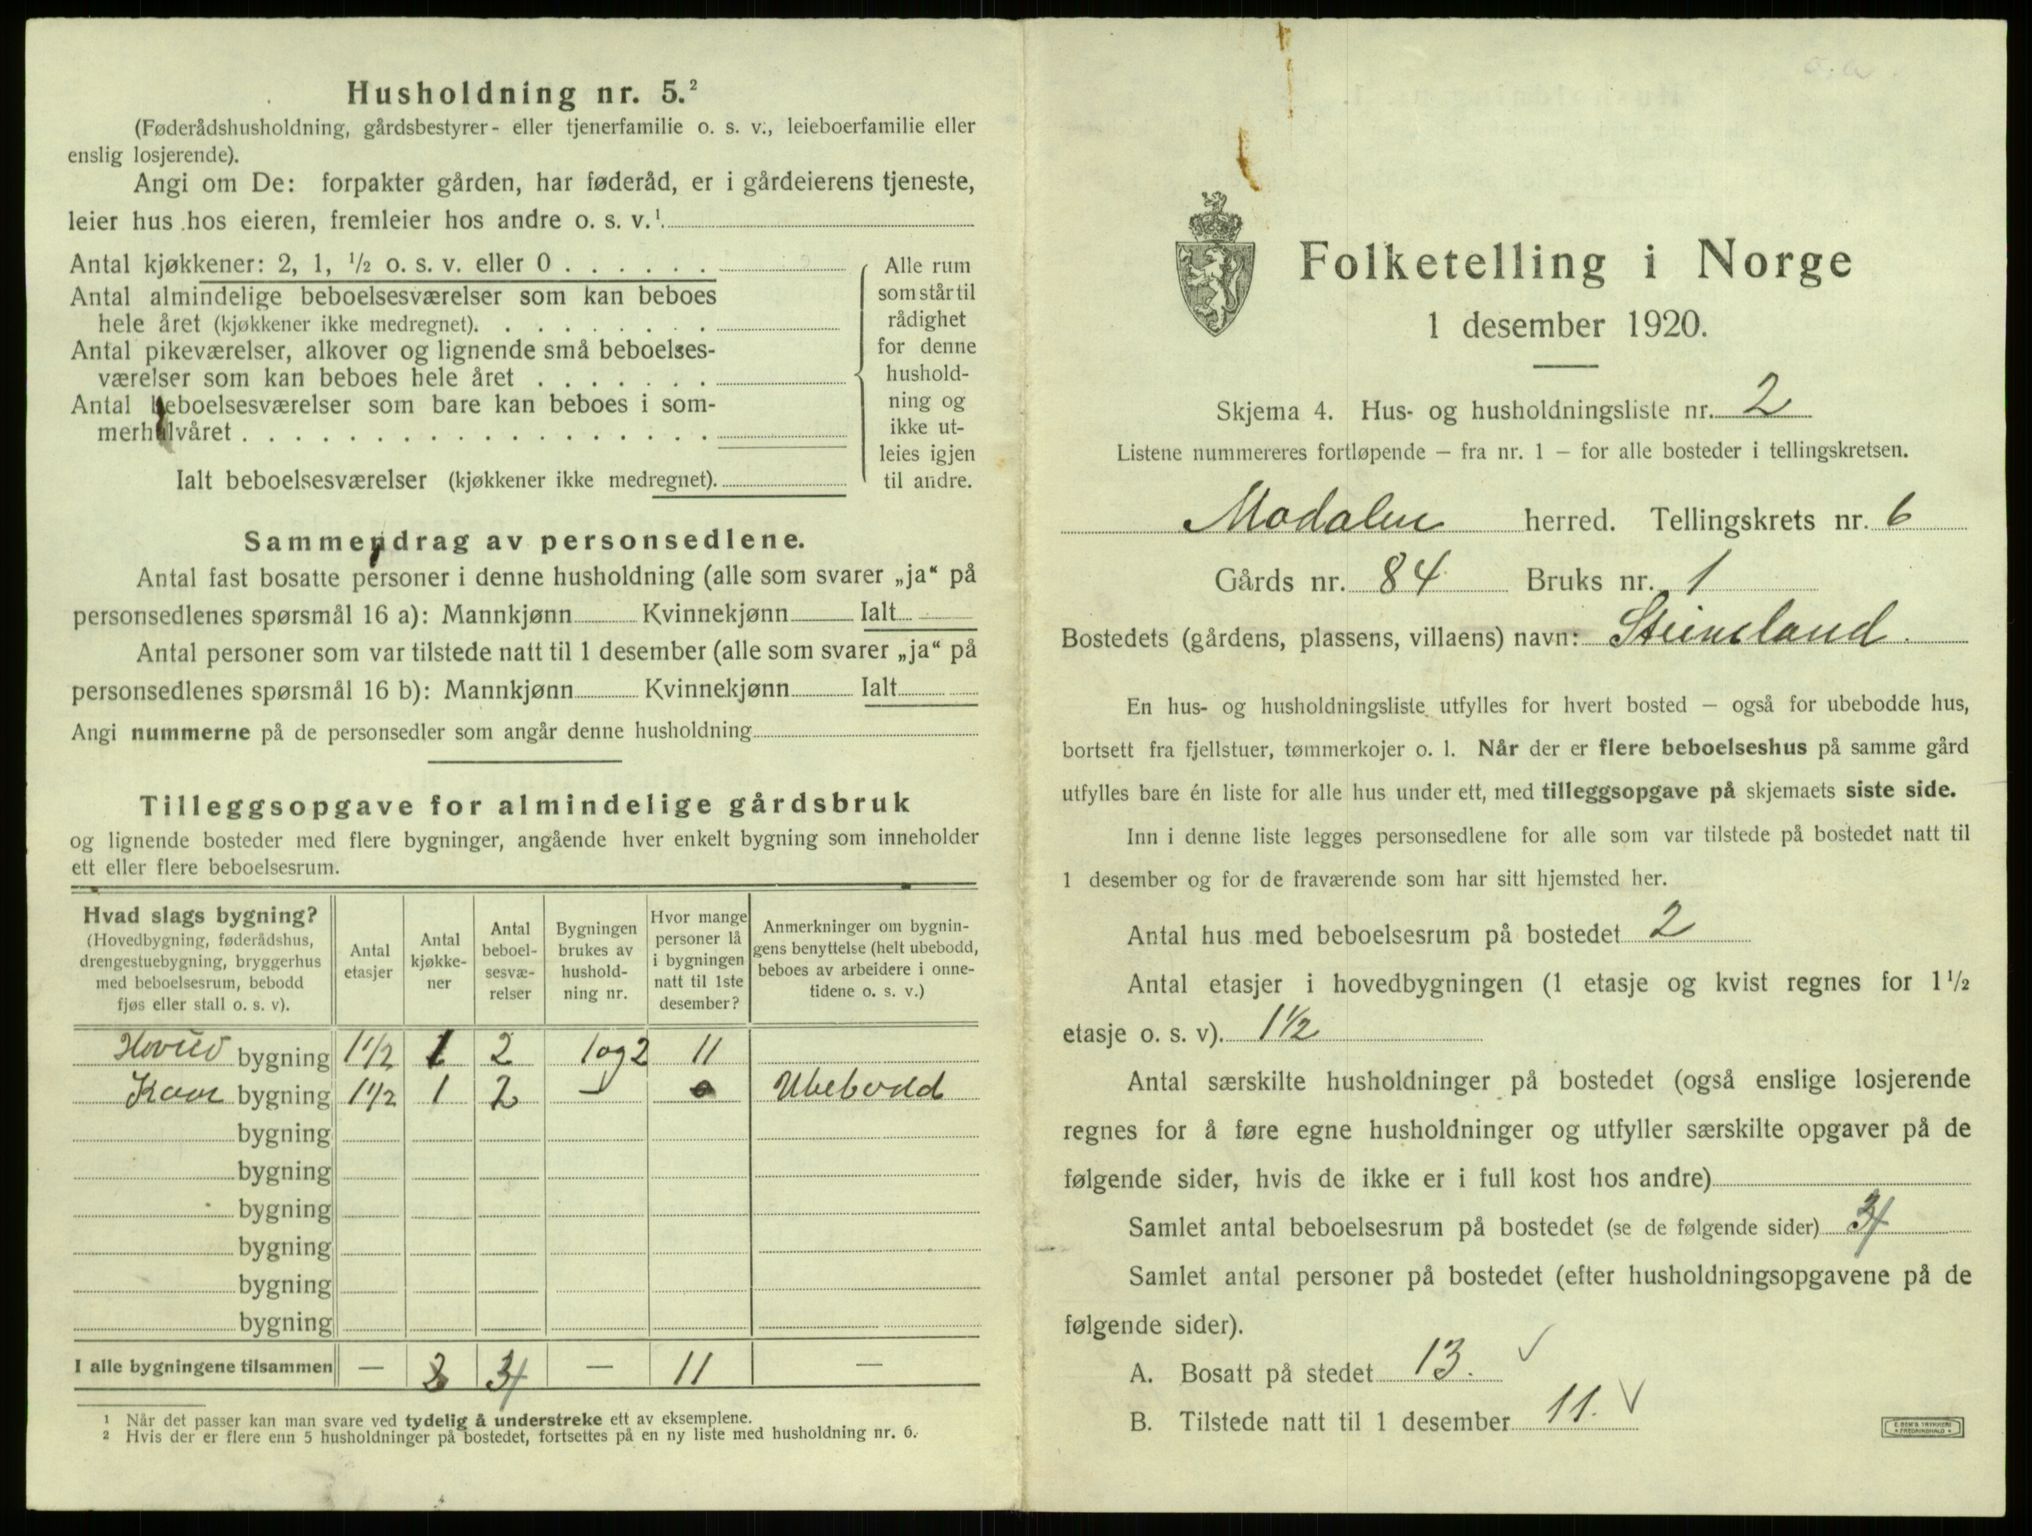 Husholdning nr. 5.²
(Føderådshusholdning, gårdsbestyrer- eller tjenerfamilie o. s. v., leieboerfamilie eller
enslig losjerende).
Angi om De: forpakter gården, har føderåd, er i gårdeierens tjeneste,
leier hus hos eieren, fremleier hos andre o. s. v.¹
Antal kjøkkener: 2, 1, ½ o. s. v. eller 0 . . . . . .
Antal almindelige beboelsesværelser som kan beboes
hele året (kjøkkener ikke medregnet). . . . . . . . .
Antal pikeværelser, alkover og lignende små beboelses-
værelser som kan beboes hele året . . . . . . .
Antal beboelsesværelser som bare kan beboes i som-
merhalvåret . . . . . . . . . . . . . . . . . .
Ialt beboelsesværelser (kjøkkener ikke medregnet).
Alle rum
som står til
rådighet
for denne
hushold-
ning og
ikke ut-
leies igjen
til andre.
Sammendrag av personsedlene.
Antal fast bosatte personer i denne husholdning (alle som svarer „ja“ på
personsedlenes spørsmål 16 a): Mannkjønn Kvinnekjønn Ialt
Antal personer som var tilstede natt til 1 desember (alle som svarer „ja“ på
personsedlenes spørsmål 16 b): Mannkjønn Kvinnekjønn Ialt
Angi nummerne på de personsedler som angår denne husholdning
Tilleggsopgave for almindelige gårdsbruk
og lignende bosteder med flere bygninger, angående hver enkelt bygning som inneholder
ett eller flere beboelsesrum.
Hvad slags bygning?
(Hovedbygning, føderådshus,
drengestuebygning, bryggerhus
med beboelsesrum, bebodd
fjøs eller stall o. s. v).
Antal
etasjer
Antal
kjøkke-
ner
Antal
beboel-
sesvæ-
relser
Bygningen
brukes av
hushold-
ning nr.
Hvor mange
personer lå
i bygningen
natt til 1ste
desember?
Anmerkninger om bygnin-
gens benyttelse (helt ubebodd,
beboes av arbeidere i onne-
tidene o. s. v.)
bygning 1½ 1 2 1og2 11
bygning 1½ 1 2 — 0 Ubebodd
bygning
bygning
bygning
bygning
bygning
bygning
I alle bygningene tilsammen — 2 4 — 11 —
¹ Når det passer kan man svare ved tydelig å understreke ett av eksemplene.
² Hvis der er flere enn 5 husholdninger på bostedet, fortsettes på en ny liste med husholdning nr. 6.
Folketelling i Norge
1 desember 1920.
Skjema 4. Hus- og husholdningsliste nr. 2
Listene nummereres fortløpende — fra nr. 1 — for alle bosteder i tellingskretsen.
Modalen herred. Tellingskrets nr. 6
Gårds nr. 84 Bruks nr. 1
Bostedets (gårdens, plassens, villaens) navn: Steinsland.
En hus- og husholdningsliste utfylles for hvert bosted — også for ubebodde hus,
bortsett fra fjellstuer, tømmerkojer o. l. Når der er flere beboelseshus på samme gård
utfylles bare én liste for alle hus under ett, med tilleggsopgave på skjemaets siste side.
Inn i denne liste legges personsedlene for alle som var tilstede på bostedet natt til
1 desember og for de fraværende som har sitt hjemsted her.
Antal hus med beboelsesrum på bostedet 2
Antal etasjer i hovedbygningen (1 etasje og kvist regnes for 1½
etasje o. s. v). 1½
Antal særskilte husholdninger på bostedet (også enslige losjerende
regnes for å føre egne husholdninger og utfyller særskilte opgaver på de
følgende sider, hvis de ikke er i full kost hos andre)
Samlet antal beboelsesrum på bostedet (se de følgende sider) 4
Samlet antal personer på bostedet (efter husholdningsopgavene på de
følgende sider).
A. Bosatt på stedet 13. ✓
B. Tilstede natt til 1 desember 11. ✓